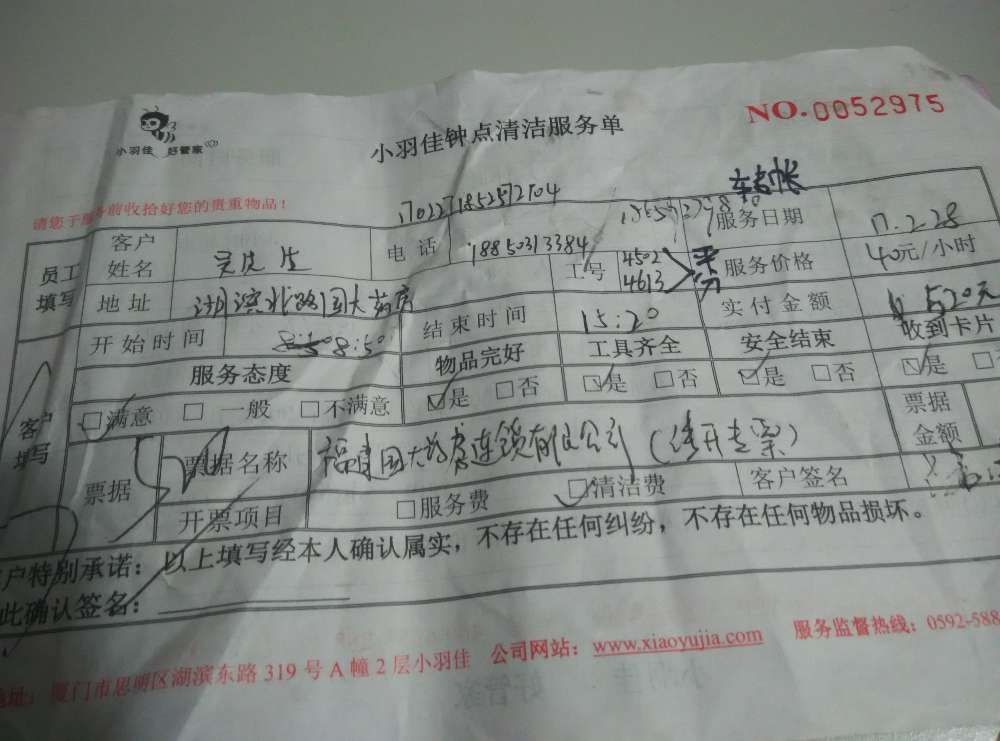 小羽佳 好管家
小羽佳钟点清洁服务单
NO.0052975
请您于服务前收拾好您的贵重物品！
转帐
员工填写
客户姓名 吴先生 电话 18850313384 服务日期 17.2.28
地址 湖滨北路国大药房 工号 4502 4613 平分 服务价格 40元/小时
开始时间 8:50 结束时间 15:20 实付金额 520元
客户填写
服务态度 物品完好 工具齐全 安全结束 收到卡片
☑满意 □一般 □不满意 ☑是 □否 ☑是 □否 ☑是 □否 ☑是 □
票据 票据名称 福建国大药房连锁有限公司 票据金额
开票项目 □服务费 ☑清洁费 客户签名
户特别承诺：以上填写经本人确认属实，不存在任何纠纷，不存在任何物品损坏。
此确认签名：
地址：厦门市思明区湖滨东路319号A幢2层小羽佳 公司网站：www.xiaoyujia.com 服务监督热线：0592-588